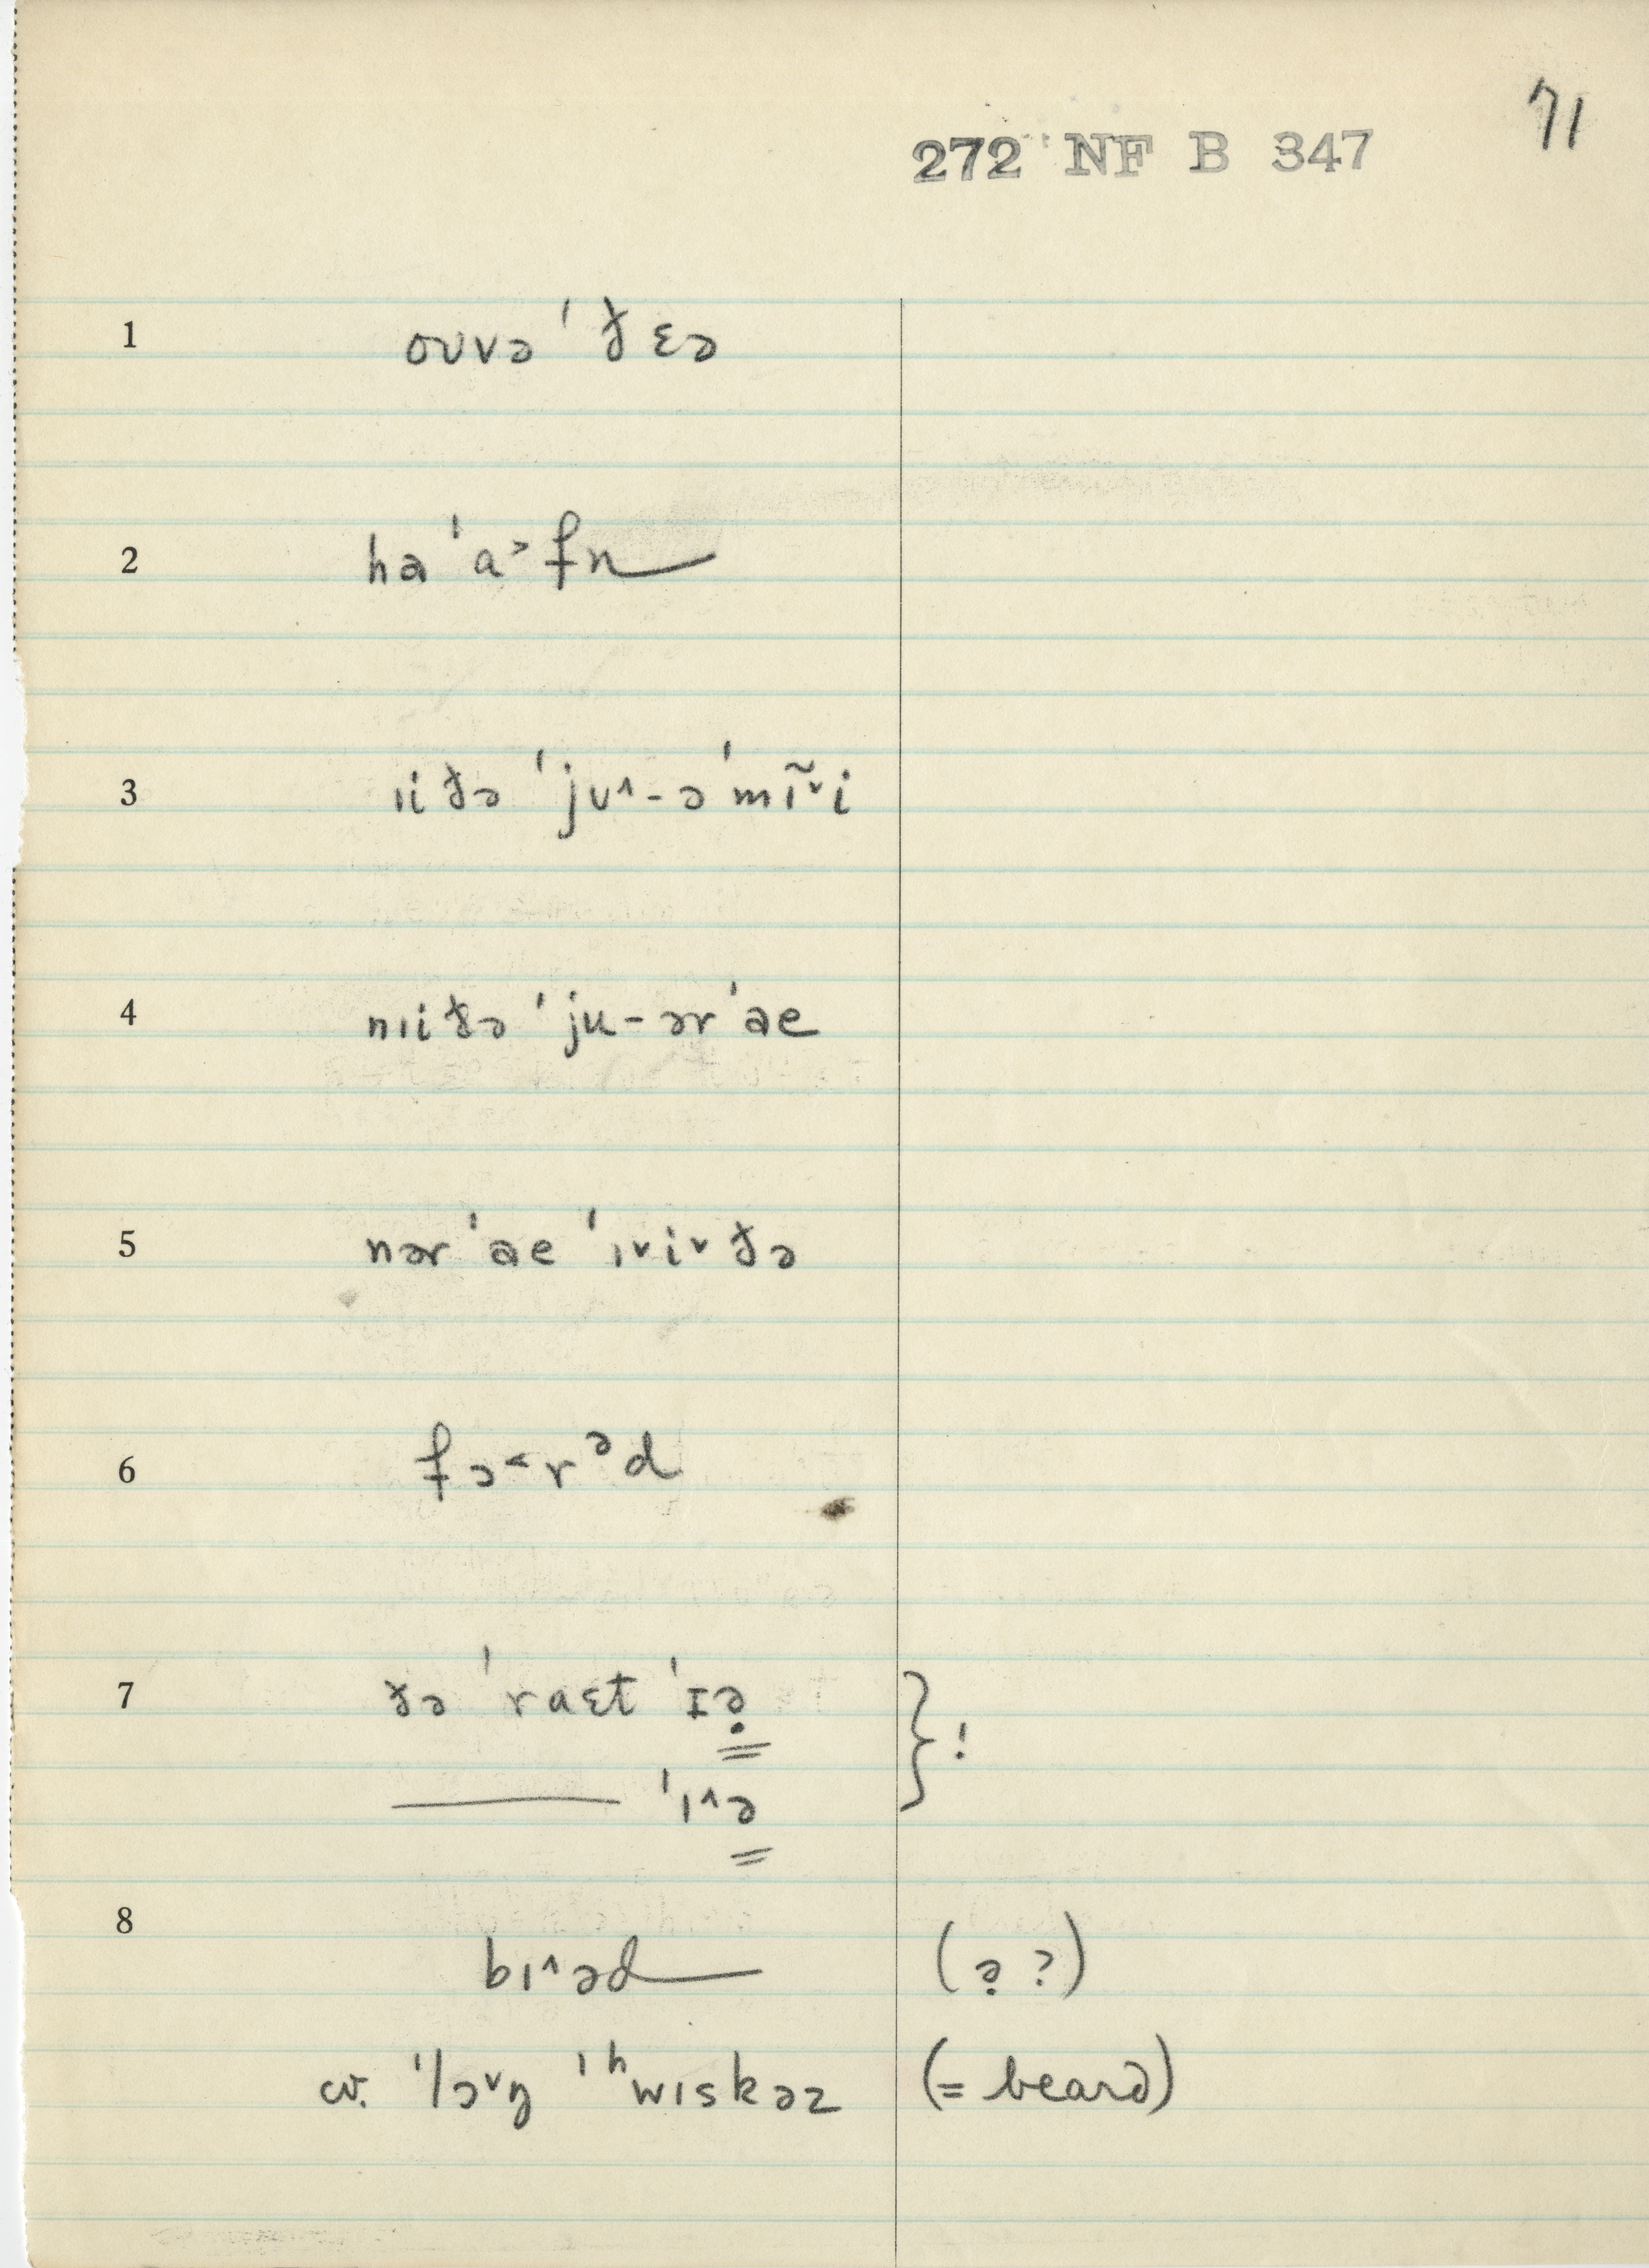 71
272 NF B 347
1 oʊvə ˈðɛə
2 haˈa˃fn
3 ɪiðə ˈjʊ˄-əˈmĩ˅i
4 nɪiðə ˈju-ərˈae
5 nərˈae ˈɪ˅i˅ðə
6 fɔ˂rᵊd
7 ðə ˈraɛt ˈɪə̣
} !
—— ˈɪ˄ə
8 bɪ˄əd (ə̣ ?)
cv. ˈlɔ˅ŋ ˈʰwɪskəz (= beard)